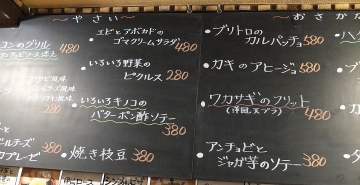 〜やさい〜
コンのグリル
480
風味
480
ールチーズ
380
エビとアボカドの
ゴマクリームサラダ 480
・いろいろ野菜の
ピクルス 280
・いろいろキノコの
バターポン酢ソテー
380
・焼き枝豆 380
〜おさか
・ブリトロの
カルパッチョ 580
・カキのアヒージョ
580
・ワカサギのフリット
(洋風天プラ) 480
・アンチョビと
ジャガ芋のソテー
380